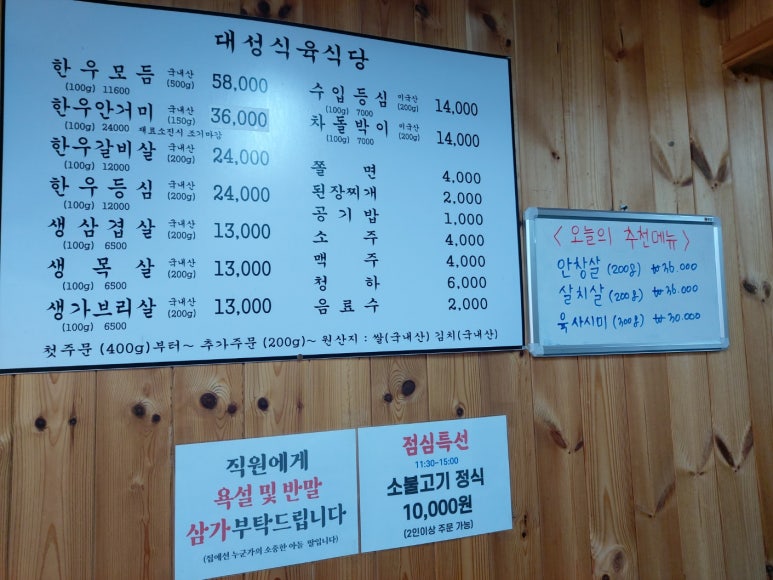 대성식육식당
한우모듬 국내산 (500g) 58,000
(100g) 11600
한우안거미 국내산 (150g) 36,000
(100g) 24000 재료소진시 조기마감
한우갈비살 국내산 (200g) 24,000
(100g) 12000
한우등심 국내산 (200g) 24,000
(100g) 12000
생삼겹살 국내산 (200g) 13,000
(100g) 6500
생목살 국내산 (200g) 13,000
(100g) 6500
생가브리살 국내산 (200g) 13,000
(100g) 6500
수입등심 미국산 (200g) 14,000
(100g) 7000
차돌박이 미국산 (200g) 14,000
(100g) 7000
쫄면 4,000
된장찌개 2,000
공기밥 1,000
소주 4,000
맥주 4,000
청하 6,000
음료수 2,000
첫주문 (400g)부터~ 추가주문 (200g)~ 원산지 : 쌀(국내산) 김치(국내산)
< 오늘의 추천메뉴 >
안창살 (200g) ₩36.000
살치살 (200g) ₩36.000
육사시미 (300g) ₩30.000
직원에게
욕설 및 반말
삼가부탁드립니다
(집에선 누군가의 소중한 아들 딸입니다)
점심특선
11:30-15:00
소불고기 정식
10,000원
(2인이상 주문 가능)